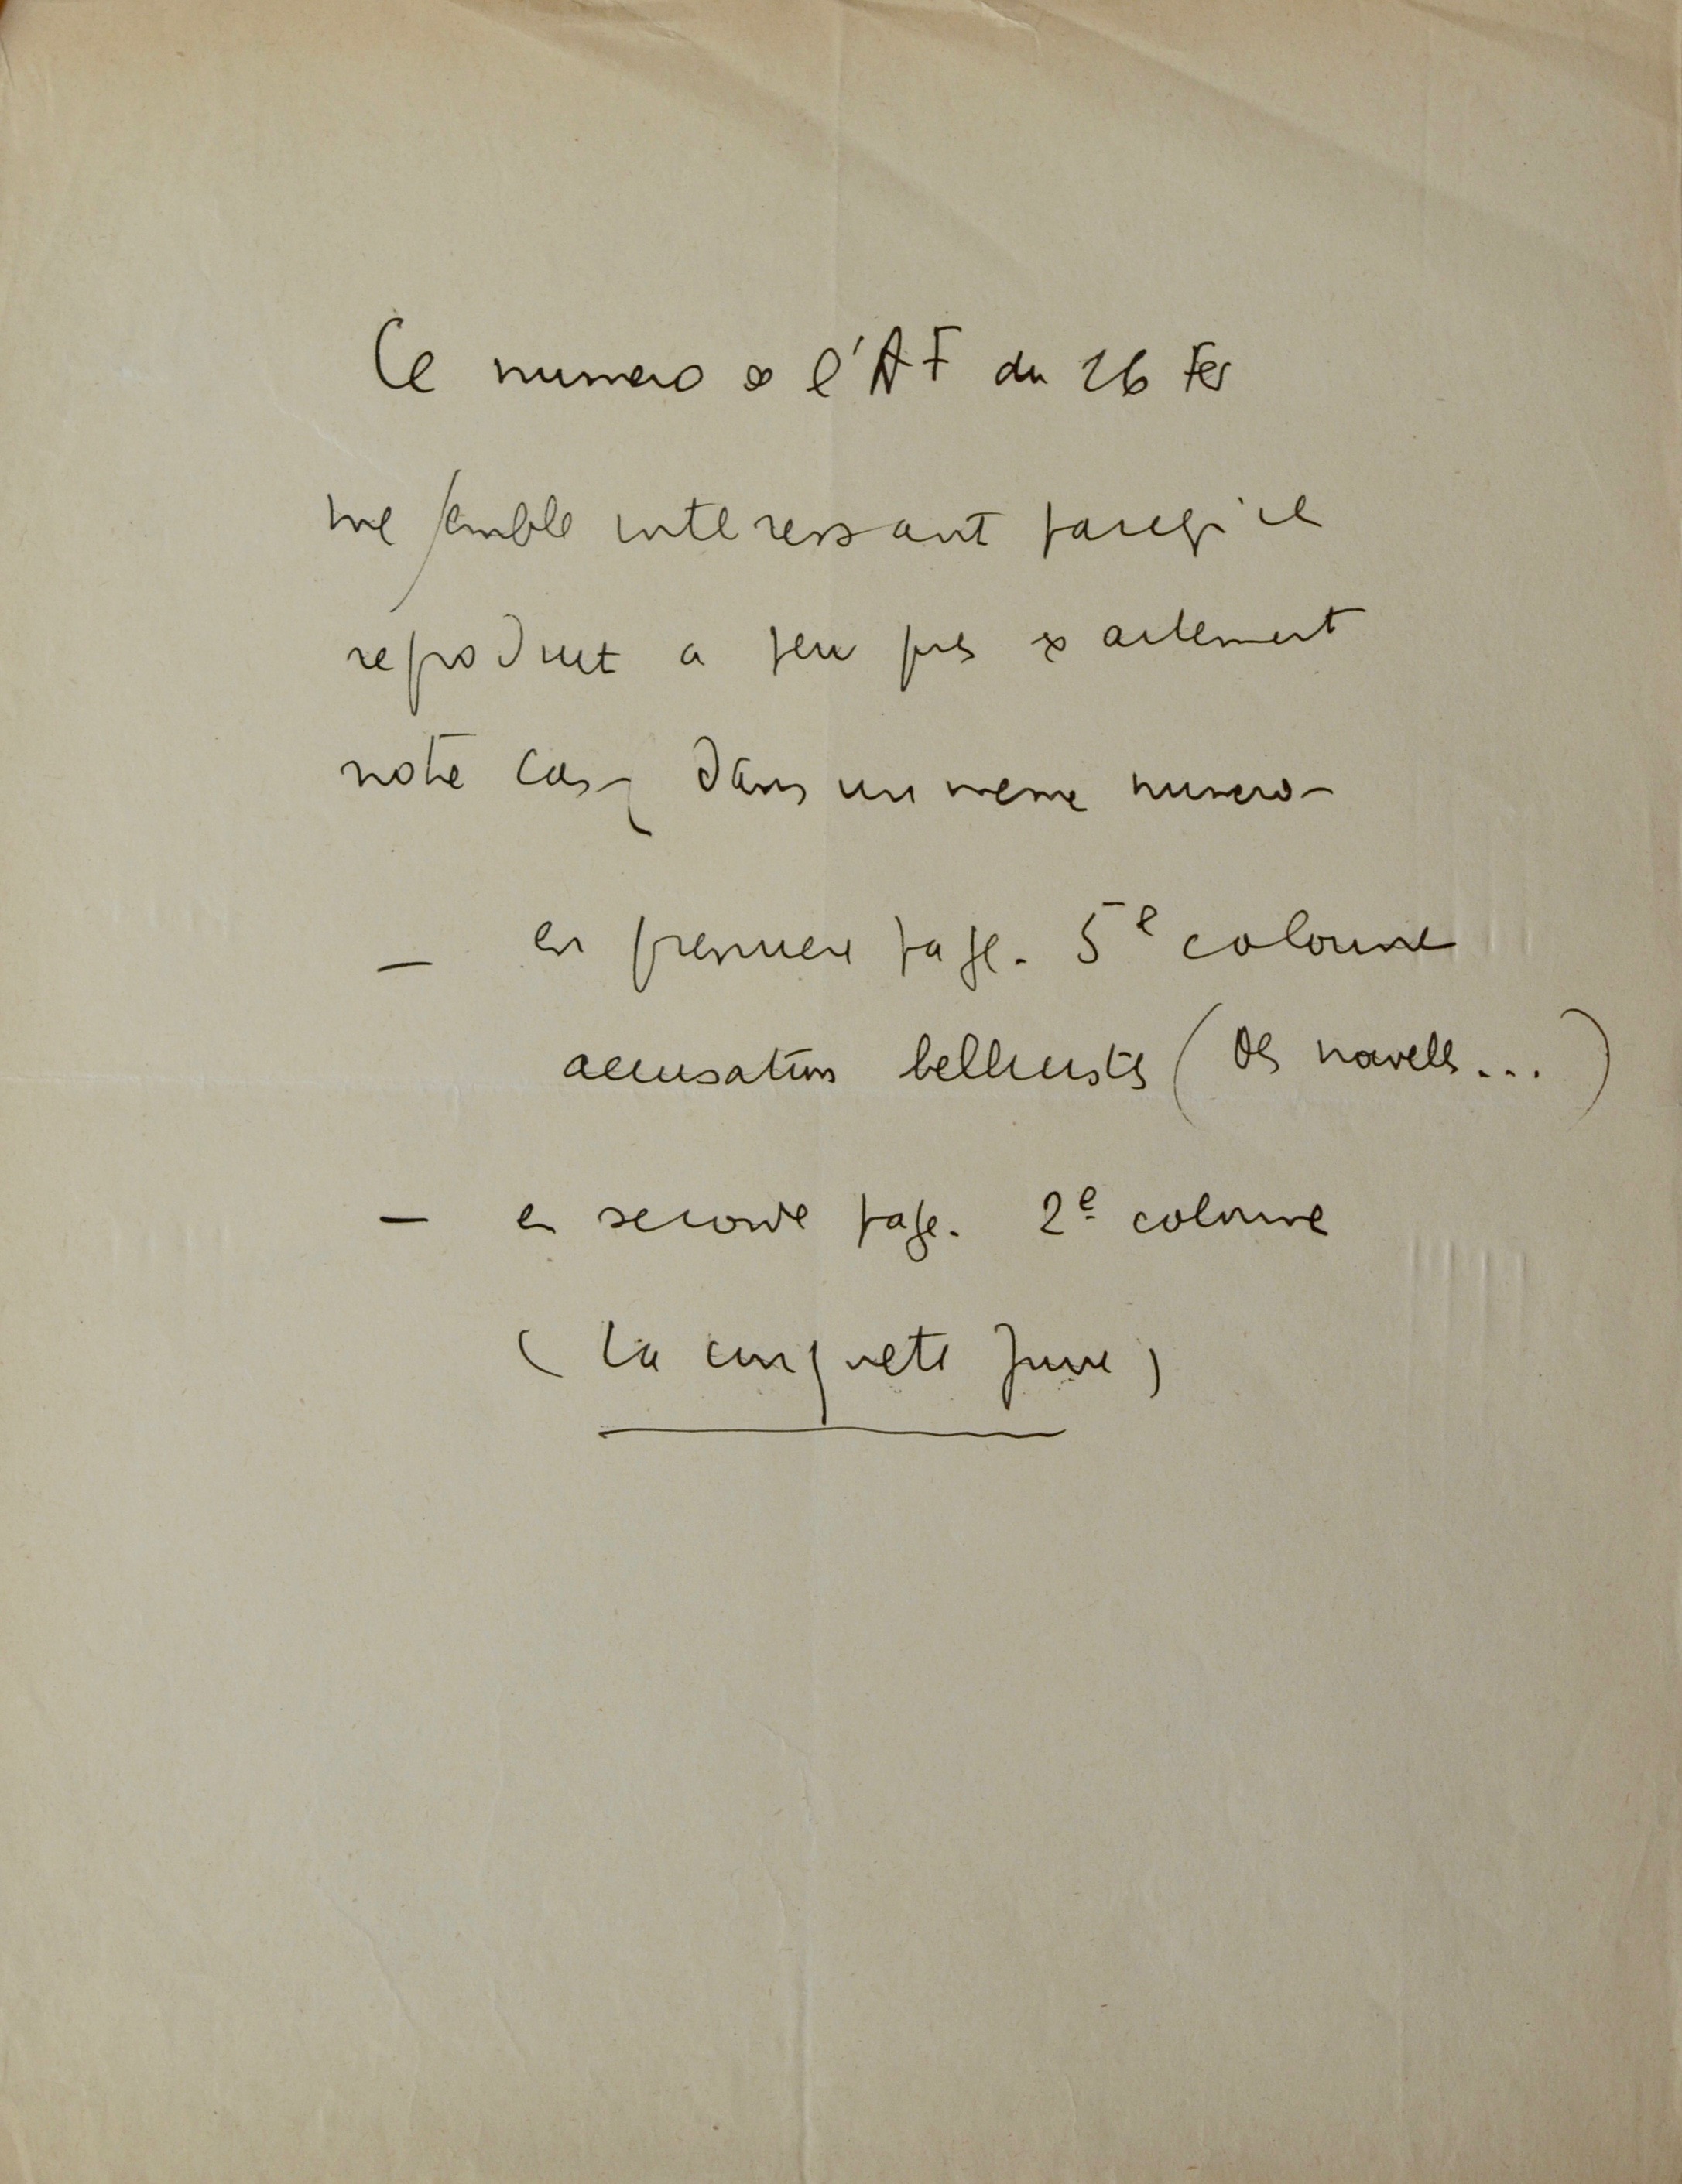 Ce numero de l'AF du 26 Fev
me semble interessant parcequ'il
reproduit a peu pres exactement
notre cas, dans un meme numero -
— en premiere page. 5e colonne
accusations bellicistes (des nouvelles...)
— en seconde page. 2e colonne
(La conquete juive)